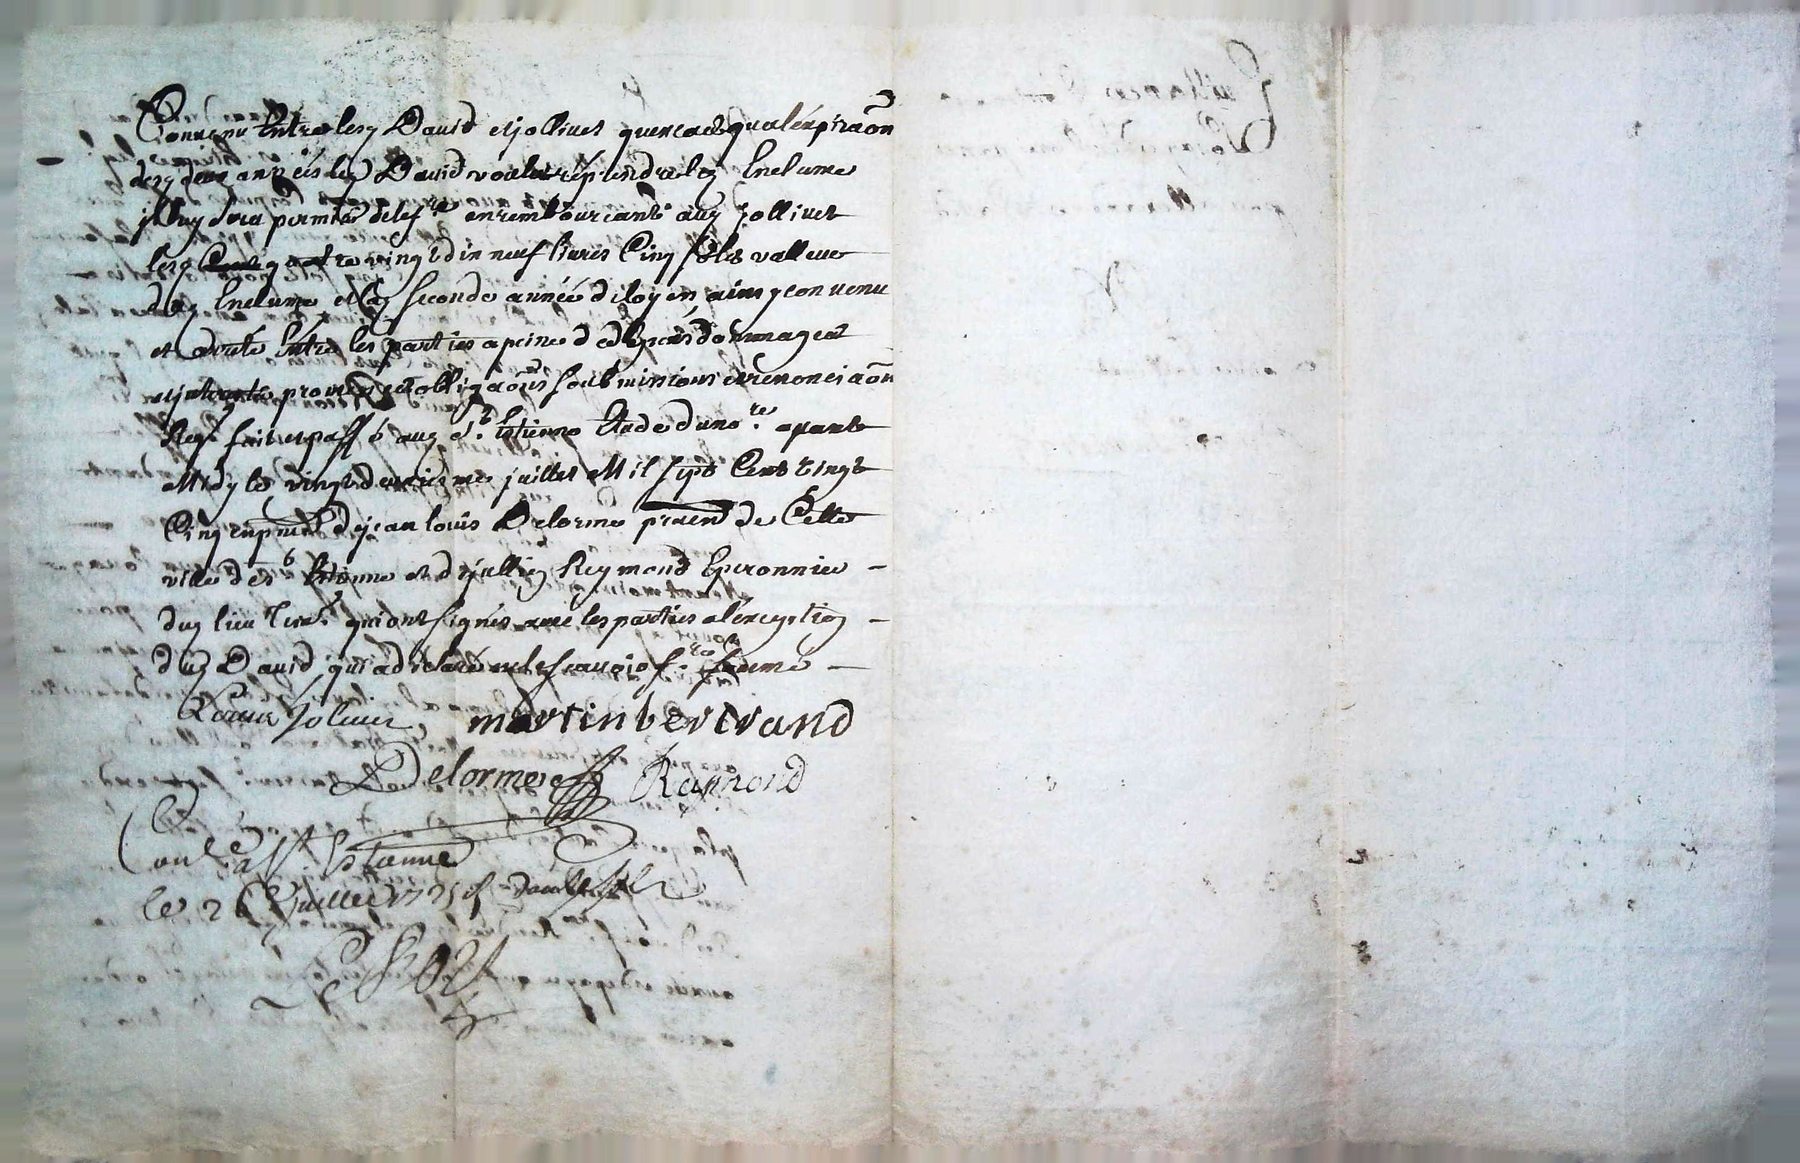 Convenu Entre lesd David et jollivet quen cas qua lexpiraōn
desd deux années led David voulut reprendre lad Enclume
il luy sera permis de le fre en remboursant aud jollivet
lesd quatre vingt dix neuf livres Cinq sols valleur
de lad Enclume et la seconde année de loyer, ainsy convenu
et arreté Entre les parties a peine de tous dépens dommages et
interests promesses obligaōns soubmissions et renonciaōn
Reqs fait et passé aud St. Estienne Etude du no.re avant
Midy le vingt deuxiesme juillet Mil sept Cent vingt
Cinq en pnce de jean louis Delorme pratn de Cette
ville de St Estienne et de jullien Reymond Eperonnier
dud lieu tem. qui ont signés avec les parties a l'exception
dud David qui a declaré ne le scavoir f.re de ce sommé
Louis Jolivet martin bertrand
Delorme Raymond
Conlé a St Estienne
le 26 Juillet 1725